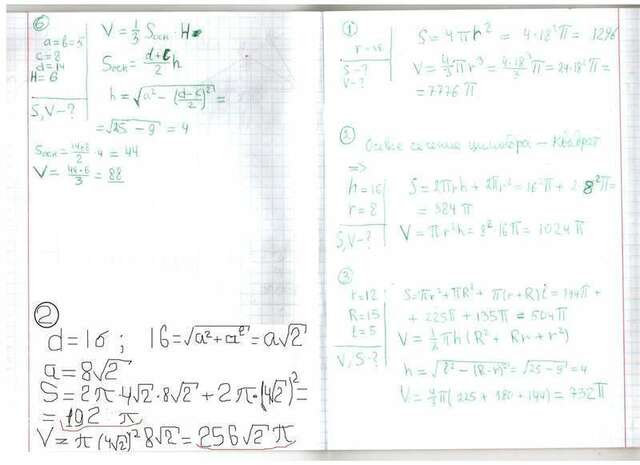 ⑥
a=b=5
c=8
d=14
H=6
S,V-?
V=1/3 Sосн·H
Sосн=(d+c)/2 h
h=√(a²-((d-c)/2)²)=
=√(25-9)=4
Sосн=(14+8)/2·4=44
V=(44·6)/3=88
②
d=16; 16=√(a²+a²)=a√2
a=8√2
S=2π·4√2·8√2+2π·(4√2)²=
=192 π
V=π(4√2)²8√2=256√2 π
①
r=18
S-?
V-?
S=4πr²=4·18²π=1296
V=4/3πr³=(4·18³)/3π=24·18²π=
=7776π
② Осевое сечение цилиндра – квадрат
=>
h=16
r=8
S,V-?
S=2πrh+2πr²=16²π+2·8²π=
=384π
V=πr²h=8²·16π=1024π
③
r=12
R=15
l=5
V,S-?
S=πr²+πR²+π(r+R)l=144π+
+225π+135π=504π
V=1/3πh(R²+Rr+r²)
h=√(l²-(R-r)²)=√(25-9)=4
V=4/3π(225+180+144)=732π